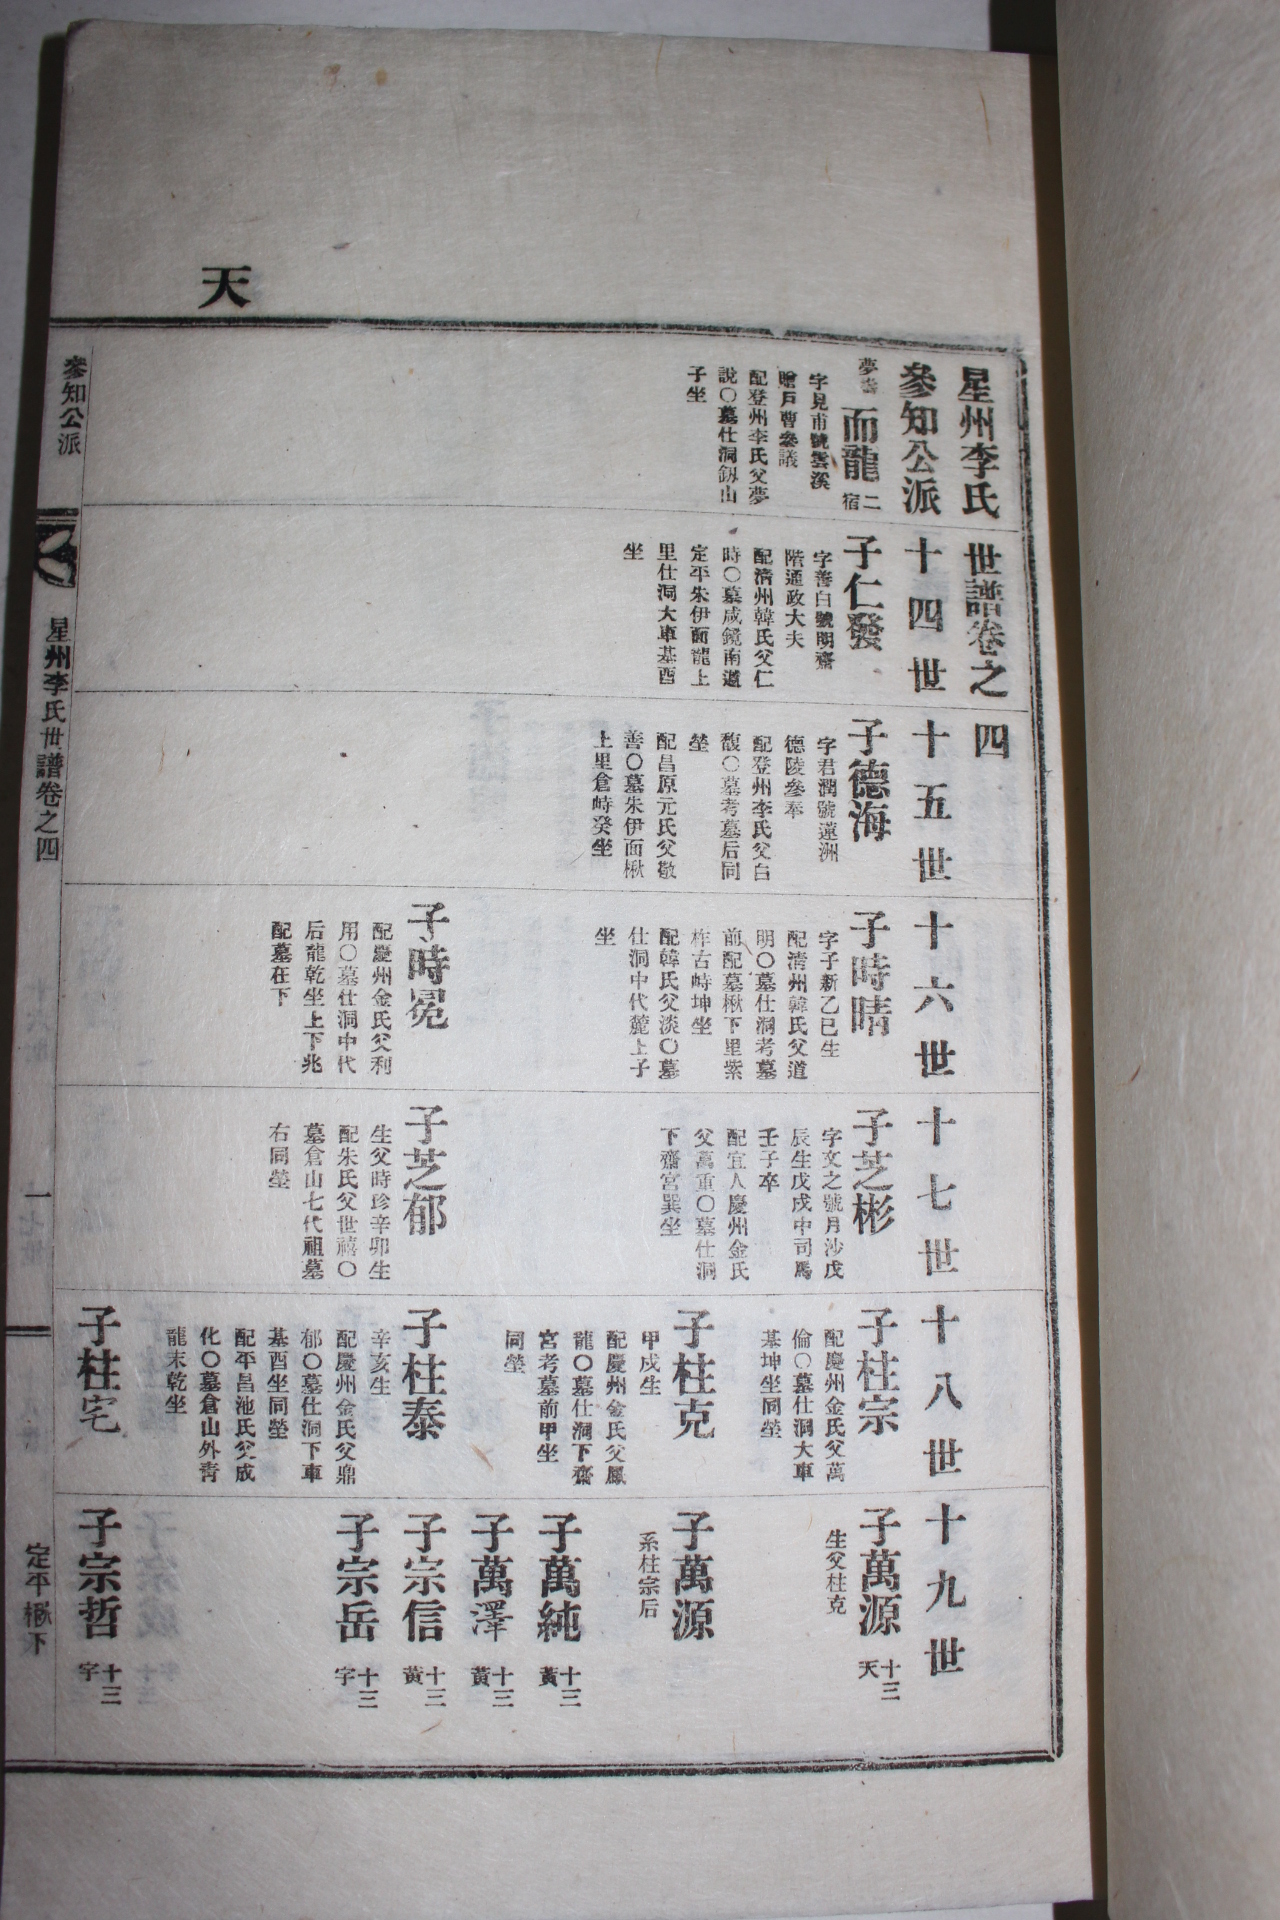 天
星州李氏世譜卷之四
參知公派
夢
而龍 二宿
字見甫號雲溪
贈戶曹參議
配登州李氏父夢
說〇墓仕洞釼山
子坐
十四世
子仁發
字善白號明齋
階通政大夫
配淸州韓氏父仁
時〇墓咸鏡南道
定平朱伊面龍上
里仕洞大車基酉
坐
十五世
子德海
字君潤號蓮洲
德陵參奉
配登州李氏父白
馥〇墓考墓后同
塋
配昌原元氏父敬
善〇墓朱伊面楸
上里倉峙癸坐
十六世
子時晴
字子新乙巳生
配淸州韓氏父道
明〇墓仕洞考墓
前配墓楸下里紫
柞古峙坤坐
配韓氏父淡〇墓
仕洞中代麓上子
坐
子時冕
配慶州金氏父利
用〇墓仕洞中代
后龍乾坐上下兆
配墓在下
十七世
子芝彬
字文之號月沙戊
辰生戊戌中司馬
壬子卒
配宜人慶州金氏
父萬重〇墓仕洞
下齋宮巽坐
子芝郁
生父時珍辛卯生
配朱氏父世禧〇
墓倉山七代祖墓
右同塋
十八世
子柱宗
配慶州金氏父萬
倫〇墓仕洞大車
基坤坐同塋
子柱克
甲戌生
配慶州金氏父鳳
龍〇墓仕洞下齋
宮考墓前甲坐
同塋
子柱泰
辛亥生
配慶州金氏父鼎
郁〇墓仕洞下車
基酉坐同塋
配平昌池氏父成
化〇墓倉山外靑
龍末乾坐
子柱宅
十九世
子萬源 十三天
生父柱克
子萬源
系柱宗后
子萬純 十三黃
子萬澤 十三黃
子宗信 十三黃
子宗岳 十三宇
子宗哲 十三宇
參知公派
星州李氏世譜卷之四
一
定平楸下